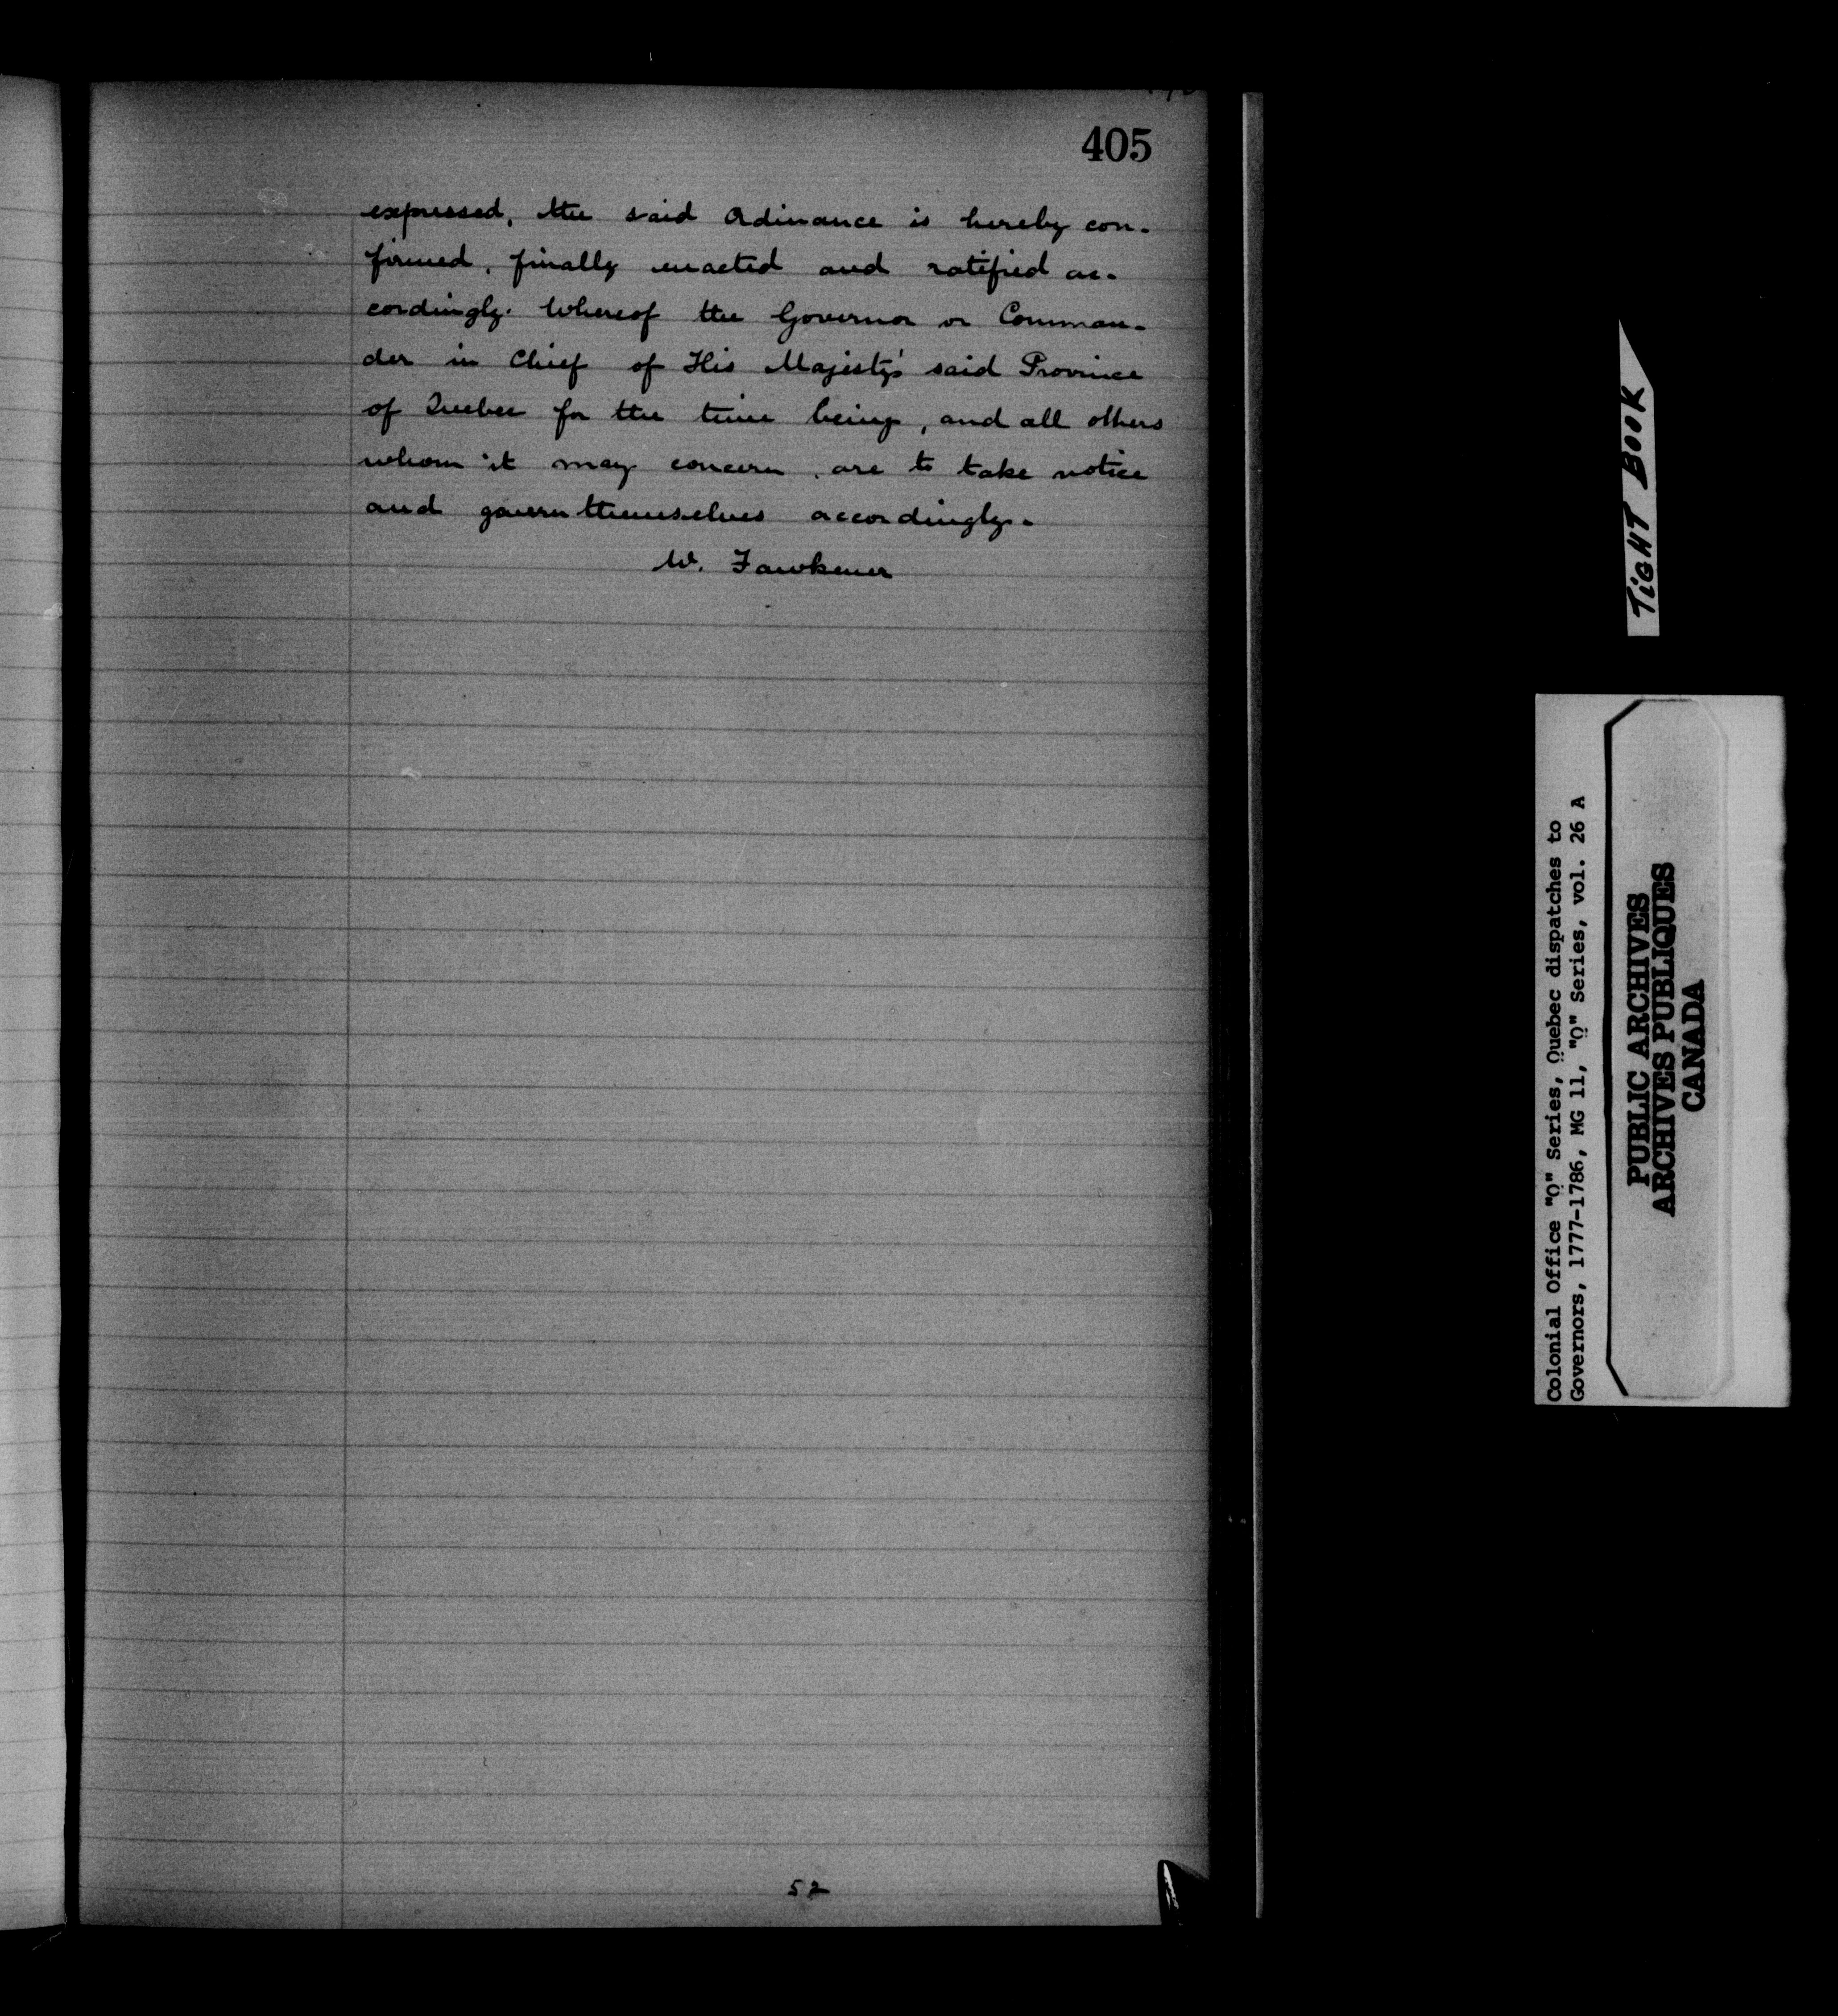 405
expressed, the said Ordinance is hereby con-
firmed, finally enacted and ratified ac-
cordingly. Whereof the Governor or Comman-
der in Chief of His Majesty's said Province
of Quebec for the time being, and all others
whom it may concern, are to take notice
and govern themselves accordingly.
W. Fawkener
52
TIGHT BOOK
Colonial Office "Q" Series, Quebec dispatches to
Governors, 1777-1786, MG 11, "Q" Series, vol. 26 A
PUBLIC ARCHIVES
ARCHIVES PUBLIQUES
CANADA